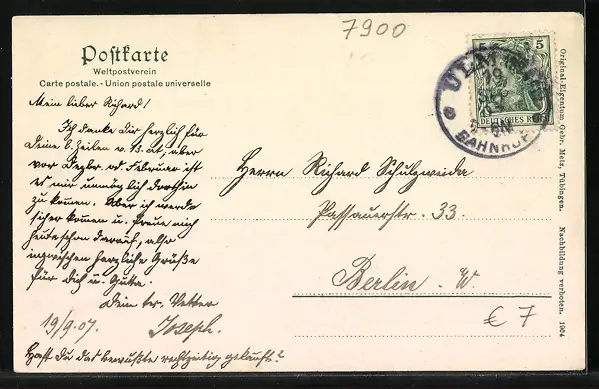 7900
Postkarte
Weltpostverein
Carte postale. - Union postale universelle
Mein lieber Richard!
Ich danke dir herzlich für
Deine l. Zeilen v. 13. at, aber
vor Dezbr. od. Februar ist
es mir unmöglich dorthin
zu kommen. Aber ich werde
sicher kommen u. freue mich
heute schon darauf, also
inzwischen herzliche Grüße
für dich u. Gute.
Dein tr. Vetter
19/9.07. Joseph.
Hast du das bewußte rechtzeitig gekauft?
Herrn Richard Schulzweida
Passauerstr. 33.
Berlin. W.
€ 7
5
DEUTSCHES REICH
ULM
BAHNHOF
Original-Eigentum Gebr. Metz, Tübingen. Nachbildung verboten. 1904